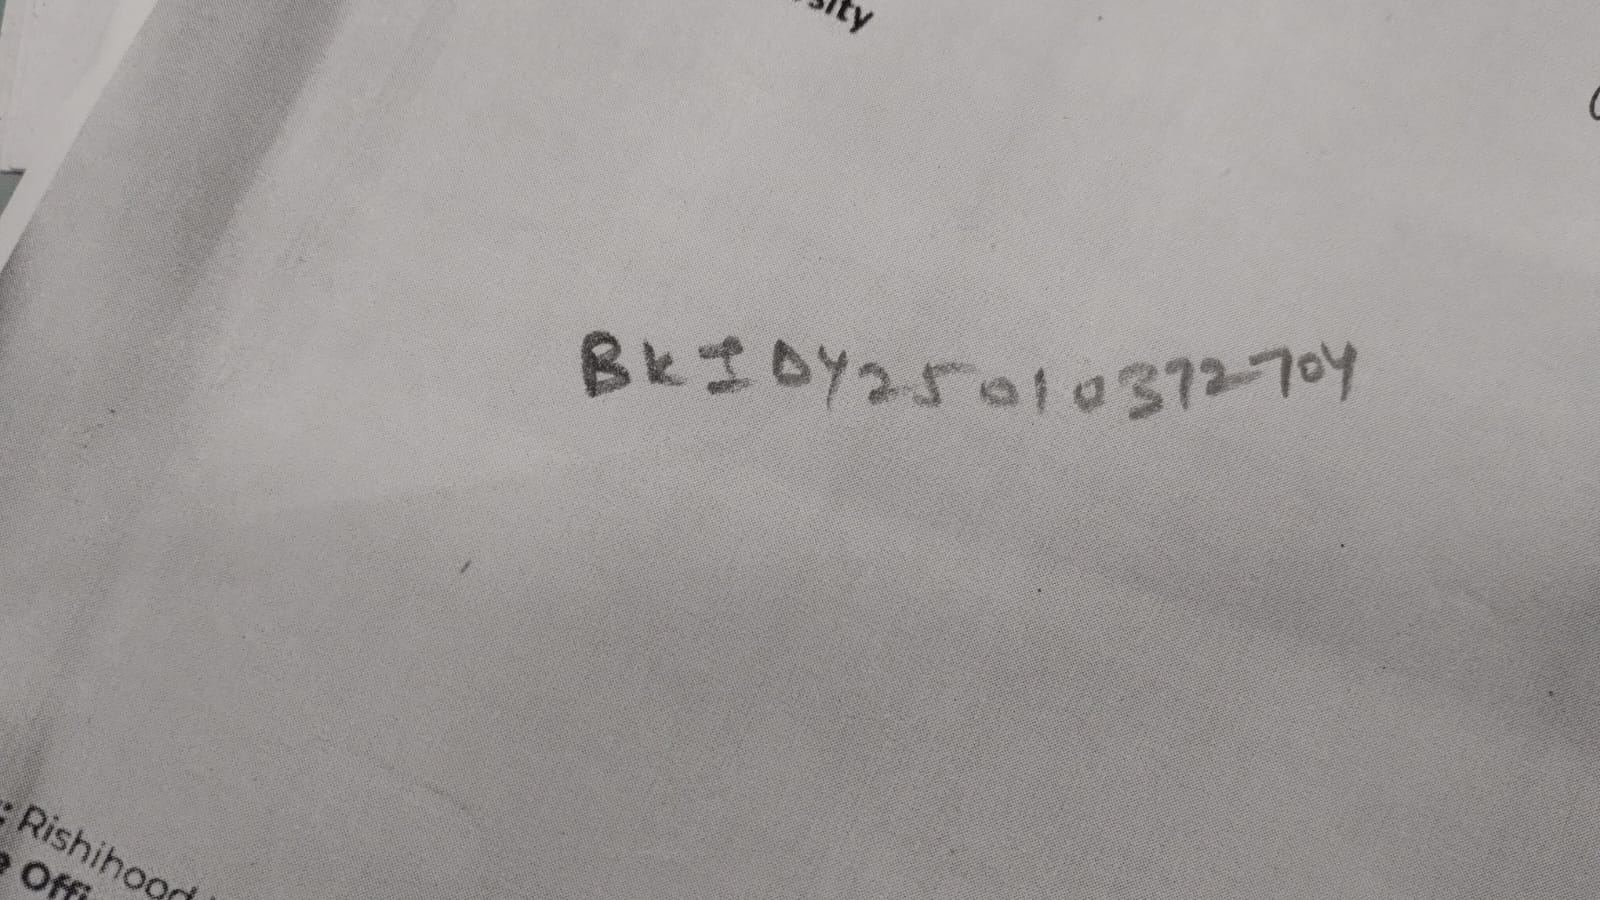 sity
BKIDY25010372704
: Rishihood
Offi